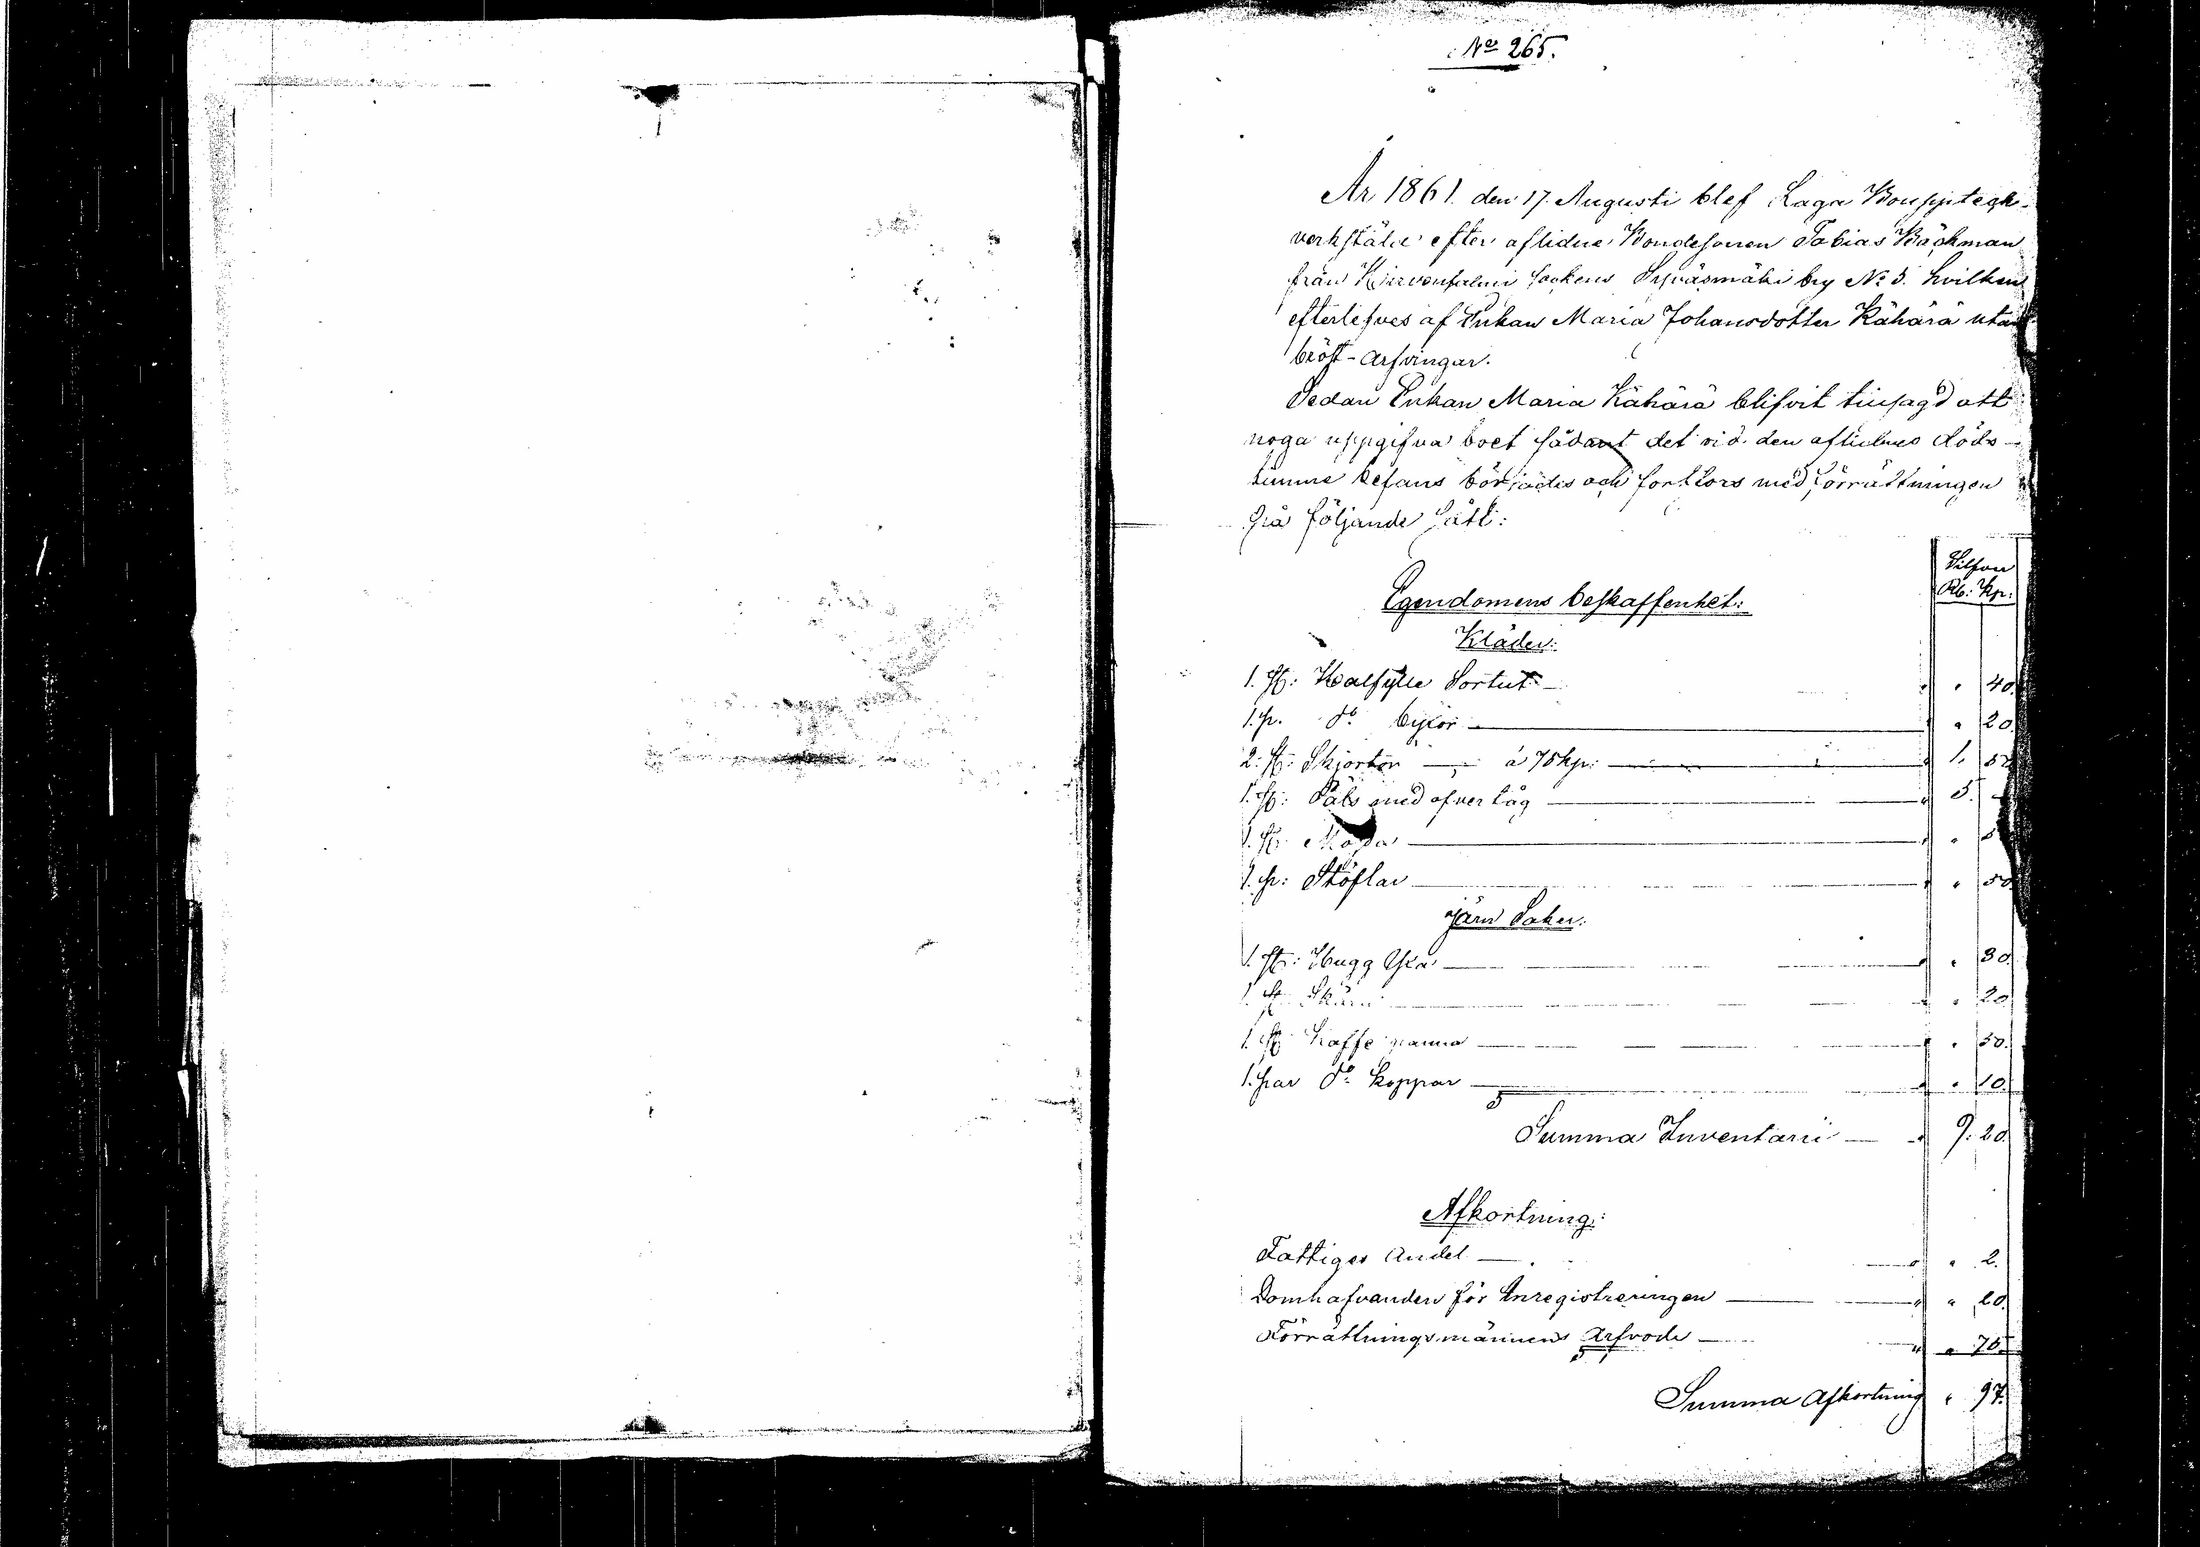 No 265.
År 1861. den 17. Augusti blef Laga Bouppteck-
verkstäld efter aflidne Bondesonen Tobias Bäckman
från Hirvensalmi sockens Syväsmäki by No 5. hvilken
efterlefves af Enkan Maria Johansdotter Kähärä utan
bröst-arfvingar.
Sedan Enkan Maria Kähärä blifvit tillsagd att
noga uppgifva boet sådant det vid den aflidnes döds-
timme befans börjades och fortfors med förrättningen
på följande sätt:
Silfver
Egendomens beskaffenhet: Rb: Kp:
Kläder:
1. st: Halfylle Sortut " 40.
1. pr. do byxor " 20.
2. st: Skjortor à 75 kp: 1. 50
1. st: Päls med ofvertåg 5. -
1. st: Mössa "
1. pr: Stöflar " 50
Järn Saker:
1. st: Hugg Yxa " 30.
1. st: Skära " 20
1. st: Kaffe panna " 50.
1. par do koppar " 10.
Summa Inventarii 9. 20.
Afkortning:
Fattiges Andel " 2.
Domhafvanden för Inregistreringen " 20.
Förrättningsmännens Arfvode " 75.
Summa Afkortning " 97.